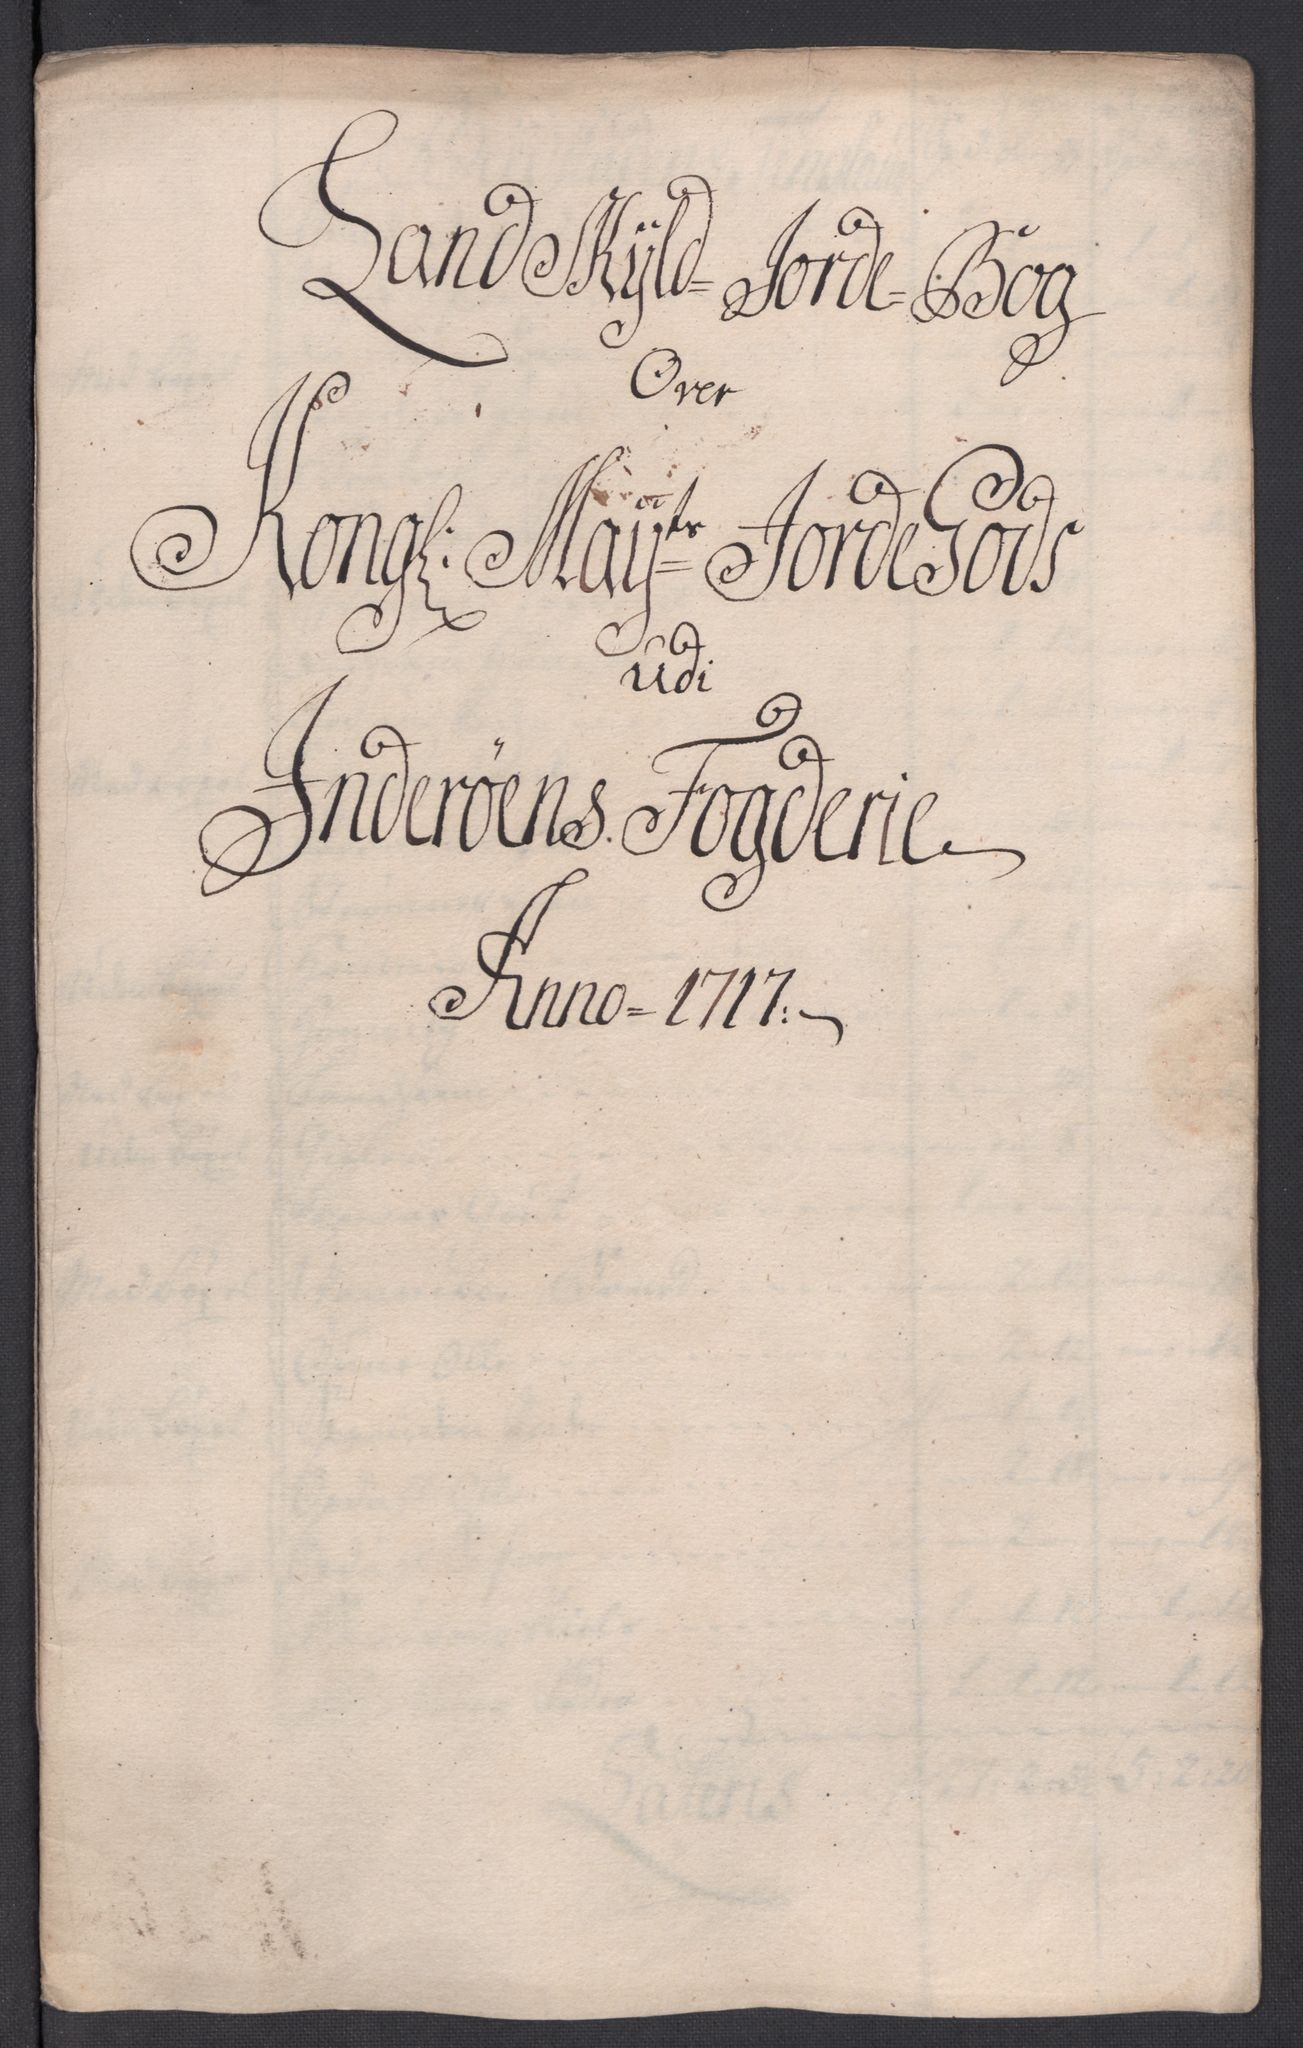 Land Skÿld= Jorde= Bog
Over
Kongl: Maÿts= JordeGods
udi
Inderöens Fogderie
Anno= 1717: